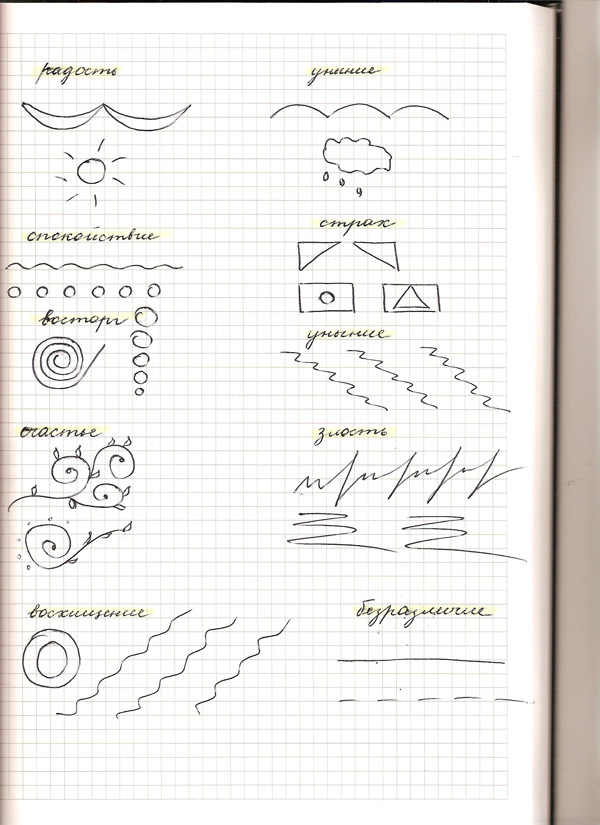 радость
уныние
спокойствие
страх
восторг
уныние
счастье
злость
восхищение
безразличие